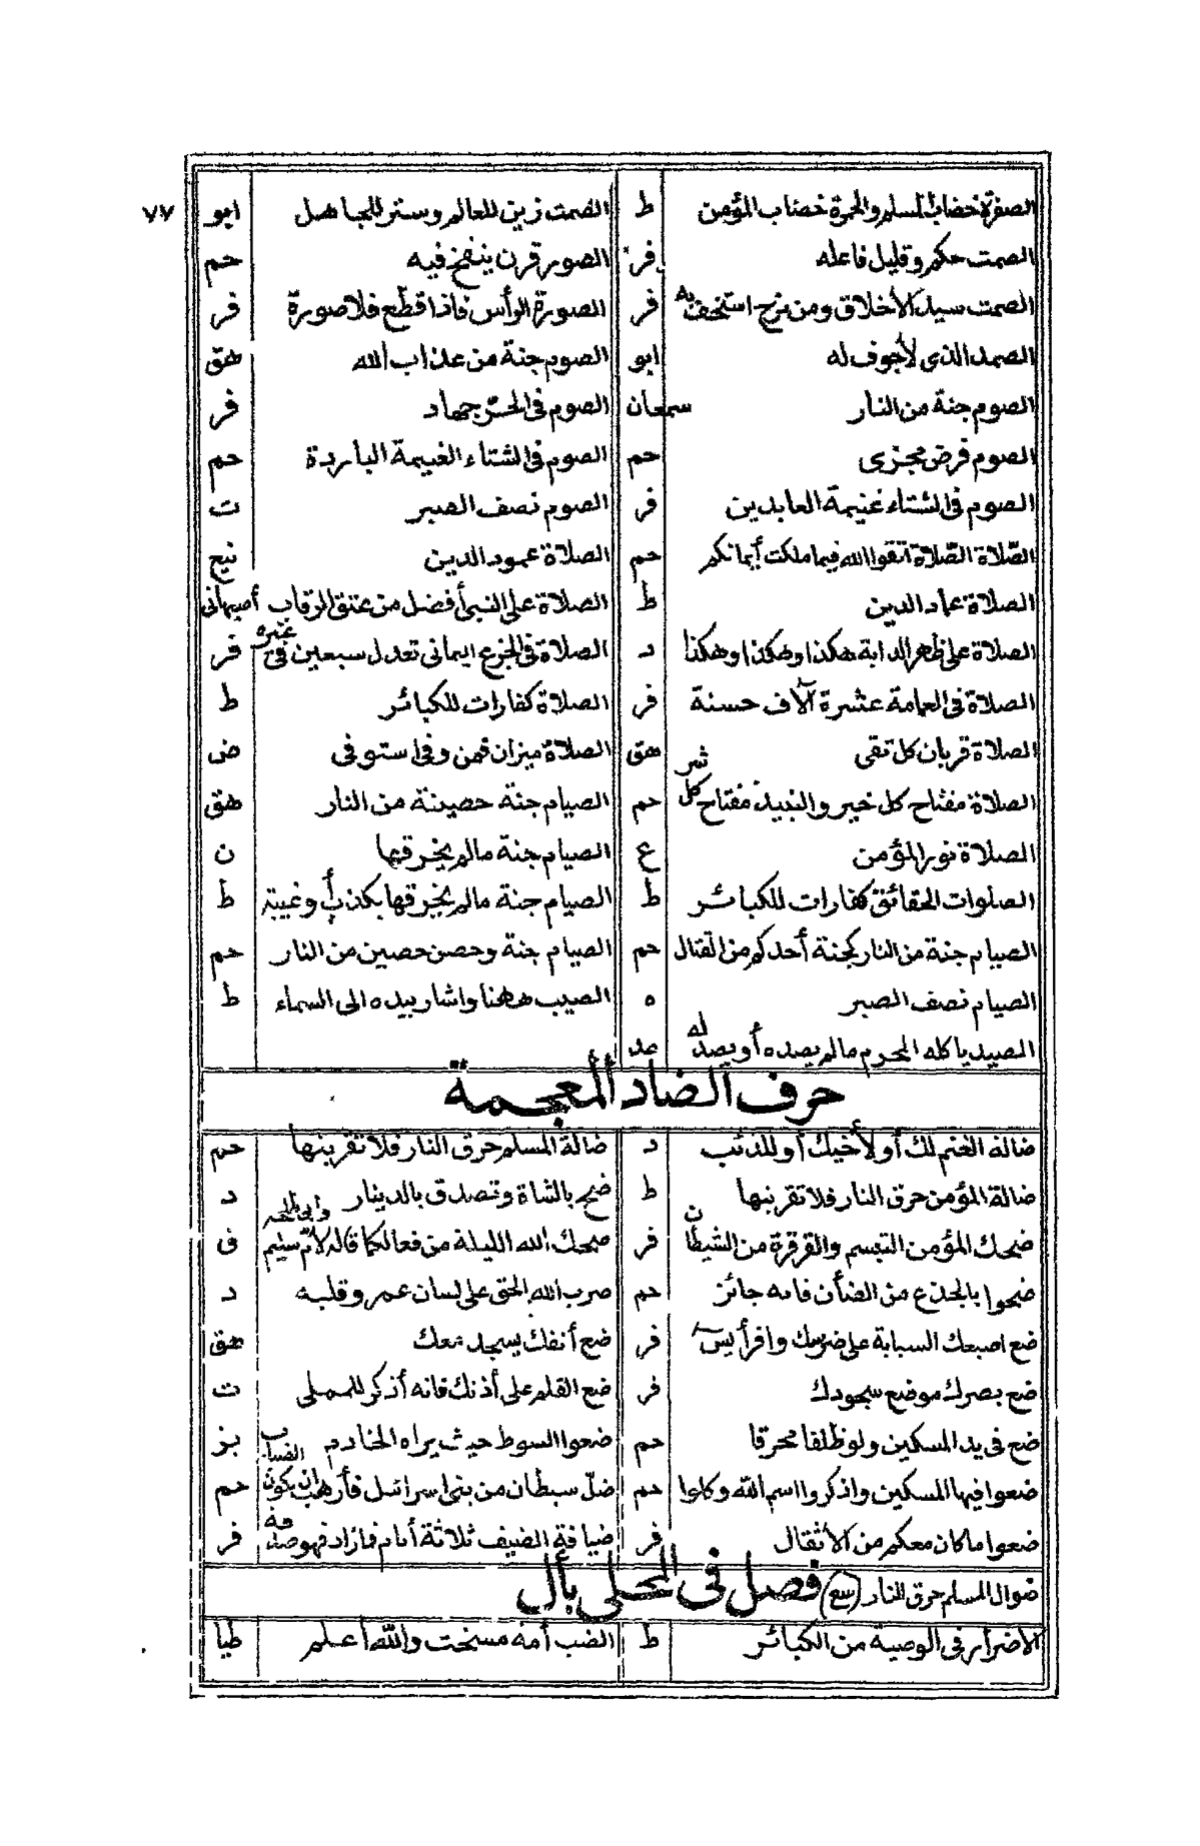 ٧٧
الصفرة خضاب المسلم والحمرة خضاب المؤمن ط الصمت زين للعالم وستر للجاهل ابو
الصمت حكم وقليل فاعله فر الصور قرن ينفخ فيه حم
الصمت سيد الأخلاق ومن مزح استخف به فر الصورة الرأس فاذا قطع فلا صورة فر
الصمد الذى لا جوف له ابو الصوم جنة من عذاب الله هق
الصوم جنة من النار سمعان الصوم فى الحر جهاد فر
الصوم فرض مجزى حم الصوم فى الشتاء الغنيمة الباردة حم
الصوم فى الشتاء غنيمة العابدين فر الصوم نصف الصبر ت
الصّلاة الصّلاة اتقوا الله فيما ملكت أيمانكم حم الصلاة عمود الدين
الصلاة عماد الدين ط الصلاة على النبى أفضل من عتق الرقاب أصبهانى
الصلاة على ظهر الدابة هكذا وهكذا وهكذا د الصلاة فى تعدل سبعين فى غيره فر
الصلاة فى العمامة عشرة آلاف حسنة فر الصلاة كفارات للكبائر ط
الصلاة قربان كل تقى هق الصلاة ميزان فمن وفى استوفى ض
الصلاة مفتاح كل خير والنبيذ مفتاح كل شر حم الصيام جنة حصينة من النار هق
الصلاة نور المؤمن ع الصيام جنة مالم يخرقها ن
الصلوات الحقائق كفارات للكبائر ط الصيام جنة مالم يخرقها بكذب أو غيبة ط
الصيام جنة من النار كجنة أحدكم من القتال حم الصيام جنة وحصن حصين من النار حم
الصيام نصف الصبر ه الصيب ههنا واشار بيده الى السماء ط
الصيد ياكله المحرم مالم يصده أو يصد له
حرف الضاد المعجمة
ضالة الغنم لك أو لأخيك أو للذئب د ضالة المسلم حرق النار فلا تقربنها حم
ضالة المؤمن حرق النار فلا تقربنها ط ضح بالشاة وتصدق بالدينار د
ضحك المؤمن التبسم والقرقرة من الشيطان فر ضحك الله الليلة من فعالكما قاله لأم سليم وأبى طلحه
ضحوا بالجذع من الضأن فانه جائز حم ضرب الله الحق على لسان عمر وقلبه د
ضع اصبعك السبابة على ضرسك واقرأ يسٓ فر ضع أنفك يسجد معك هق
ضع بصرك موضع سجودك فر ضع القلم على أذنك فانه أذكر للمملى ت
ضع فى يد المسكين ولو ظلفا محرقا حم ضعوا السوط حيث يراه الخادم بز
ضعوا فيها المسكين واذكروا اسم الله وكلوا حم ضلّ سبطان من بنى اسرائيل فأرهب ان يكون الضباب حم
ضعوا ما كان معكم من الأثقال فر ضيافة الضيف ثلاثة أيام فما زاد فهو صدقة فر
ضوال المسلم حرق النار فصل فى المحلى بأل
الاضرار فى الوصية من الكبائر ط الضب أمة مسخت والله أعلم طيا